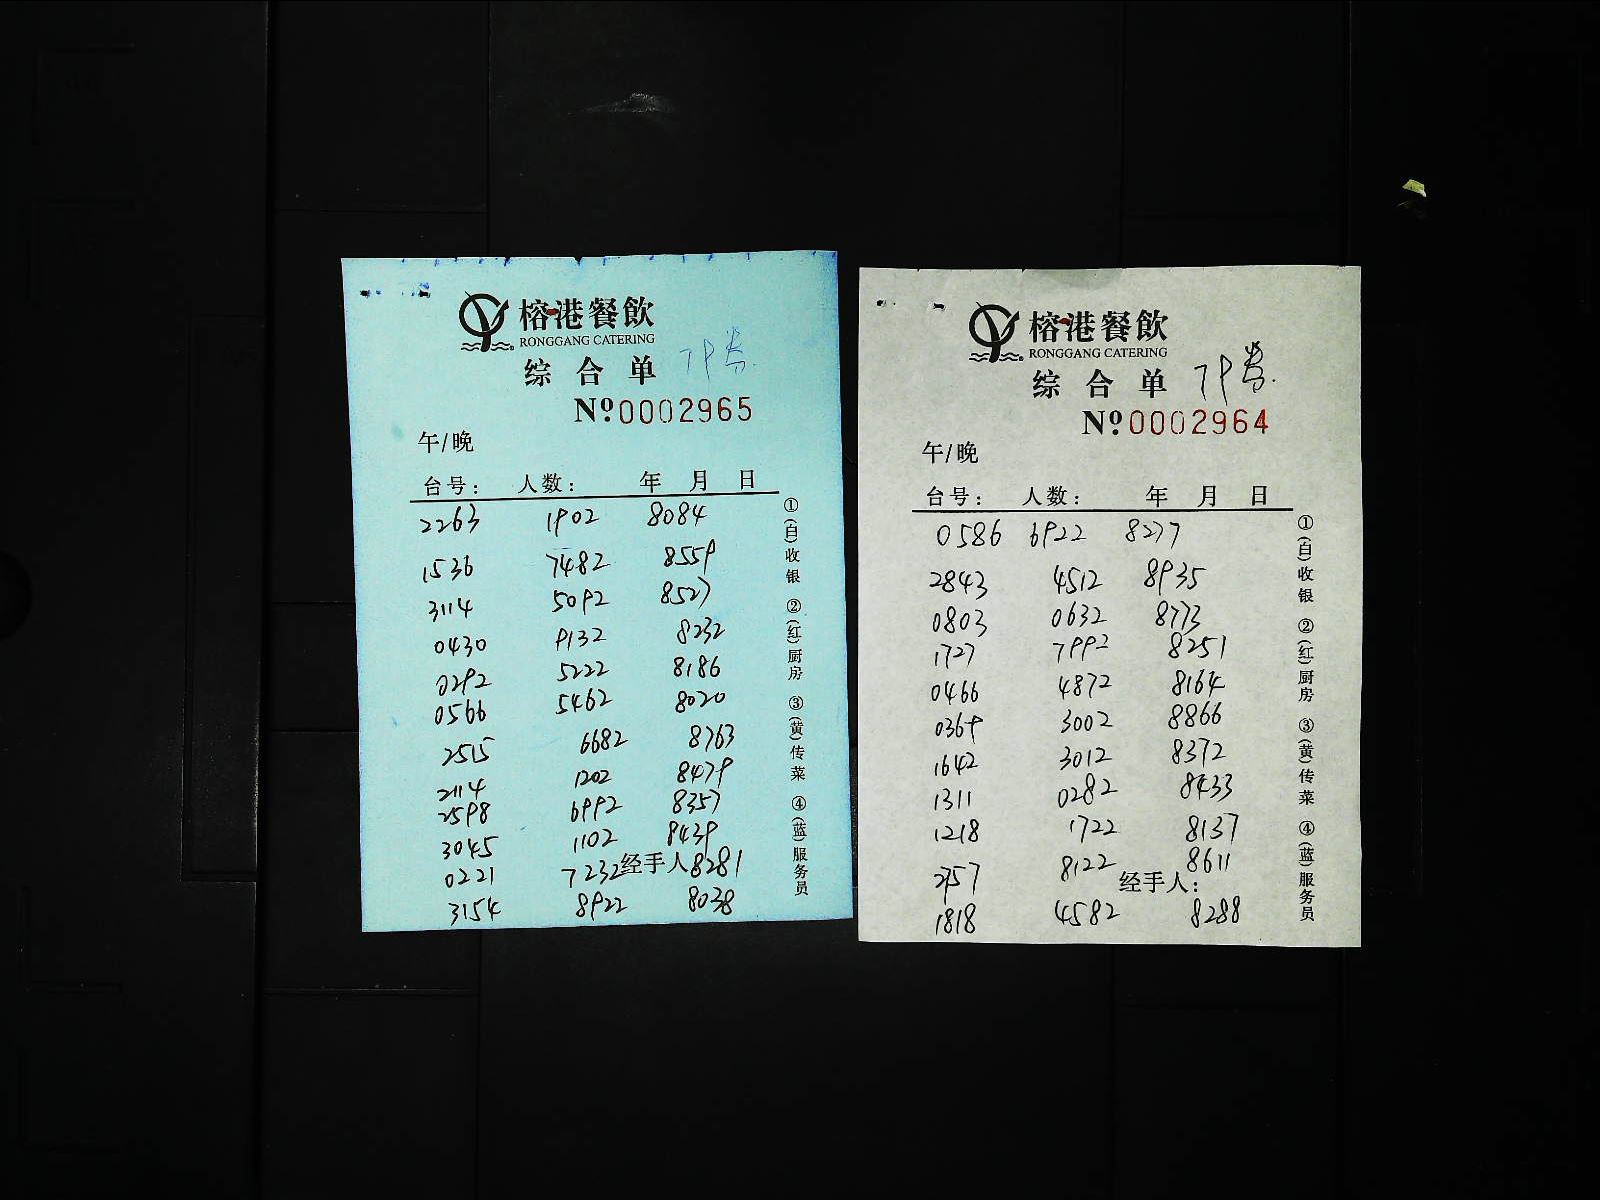 榕港餐飲
RONGGANG CATERING
综合单
№0002965
午/晚
台号: 人数: 年 月 日
2263 1902 8084
1536 7482 8559
3114 5092 8527
0430 9132 8232
0292 5222 8186
0566 5462 8020
2515 6682 8763
2114 1202 8479
2598 6992 8357
3045 1102 8439
0221 7232 经手人 8281
3154 8922 8038
①(白)收银 ②(红)厨房 ③(黄)传菜 ④(蓝)服务员
榕港餐飲
RONGGANG CATERING
综合单
№0002964
午/晚
台号: 人数: 年 月 日
0586 6922 8277
2843 4512 8935
0803 0632 8773
1727 7992 8251
0466 4872 8164
0369 3002 8866
1642 3012 8372
1311 0282 8433
1218 1722 8137
2757 8122 8611
经手人:
1818 4582 8288
①(白)收银 ②(红)厨房 ③(黄)传菜 ④(蓝)服务员